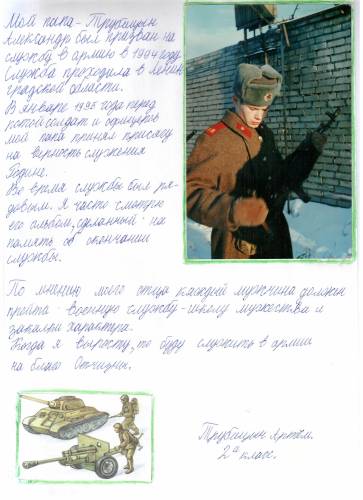 Мой папа - Трубицын
Александр был призван на
службу в армию в 1994 году.
Служба проходила в Ленин
градской области.
В январе 1995 года перед
ротой солдат и офицеров
мой папа принял присягу
на верность служения
Родине.
Во время службы был ря-
довым. Я часто смотрю
его альбом, сделанный на
память об окончании
службы.
По мнению моего отца каждый мужчина должен
пройти военную службу - школу мужества и
закалки характера.
Когда я вырасту, то буду служить в армии
на благо Отчизны.
Трубицын Артём.
2а класс.